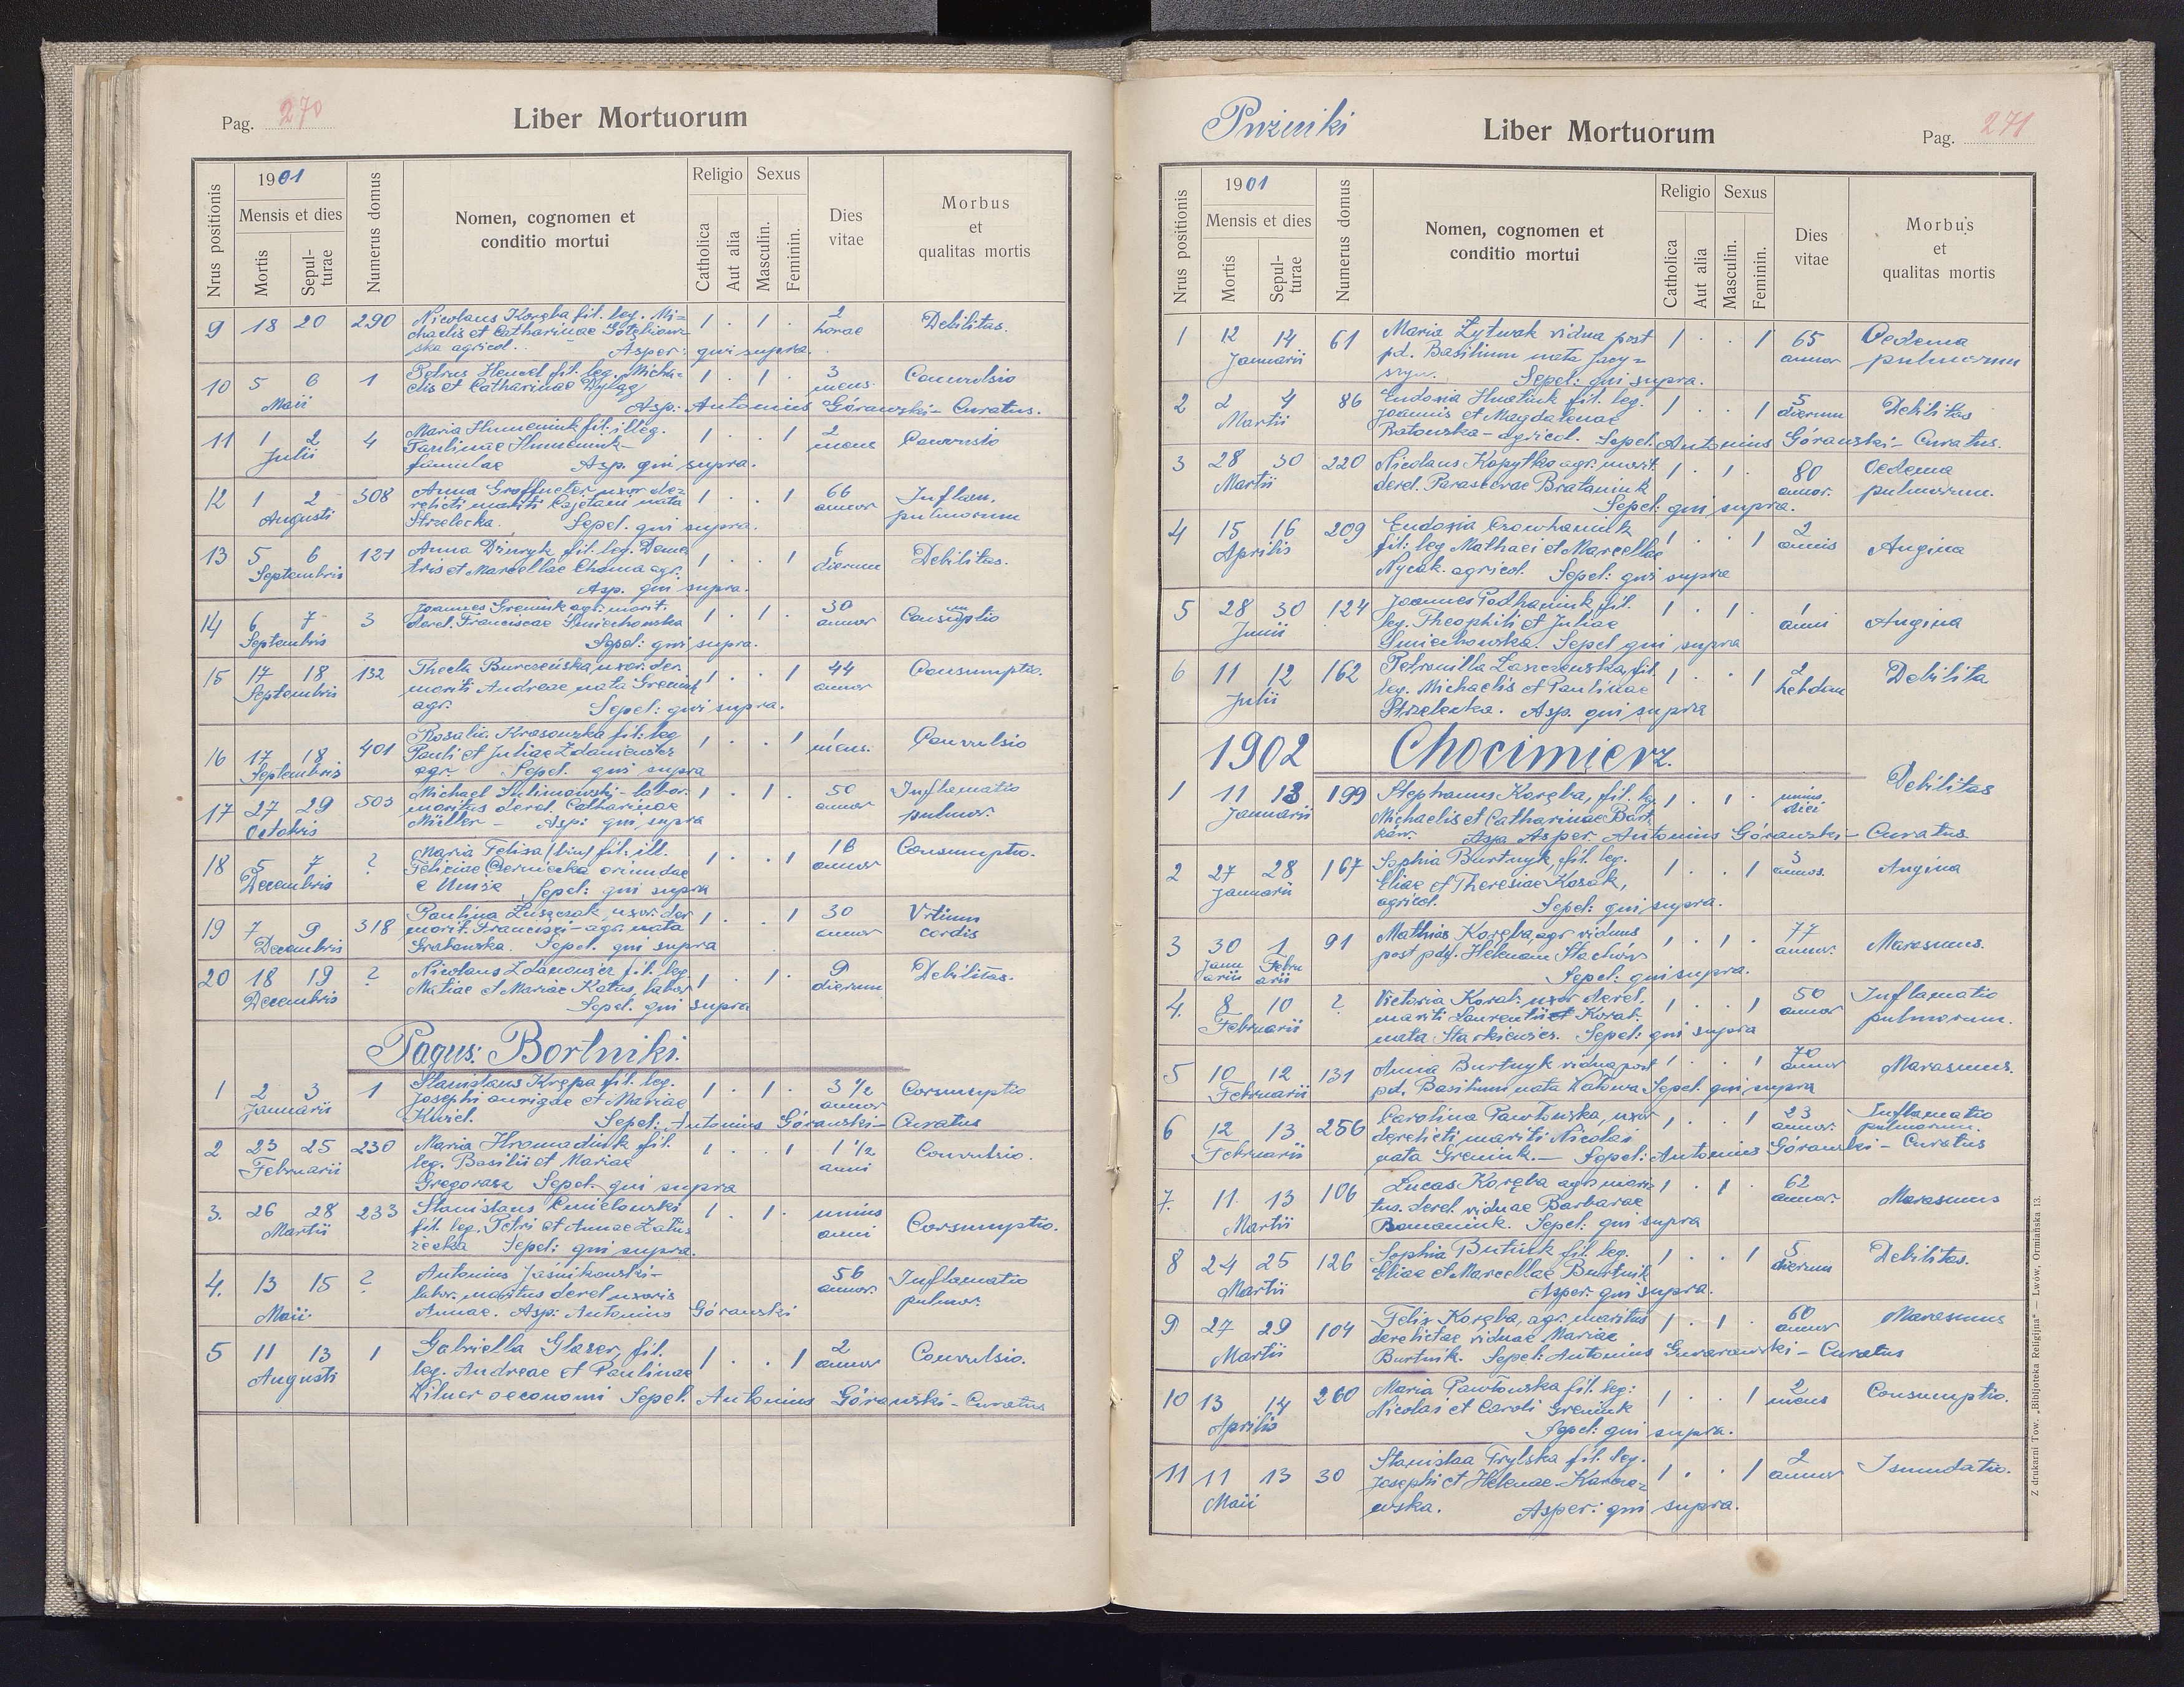 Pag. 270
Liber Mortuorum
Nrus positionis
1901
Mensis et dies
Mortis
Sepulturae
Numerus domus
Nomen, cognomen et conditio mortui
Religio
Catholica
Aut alia
Sexus
Masculin.
Feminin.
Dies vitae
Morbus et qualitas mortis
9 18 20 290 Nicolaus Koręba fil. leg. Mi= 1 . 1 . 2 Debilitas.
chaelis et Catharinae horae
ska agricol. Asper: qui supra.
10 5 6 1 Petrus Hensel fil. leg. Micha= 1 . 1 . 3 Convulsio
Maii elis et Catharinae Dyląg mens.
Asp: Antonius Górawski - Curatus.
11 1 2 4 Maria Humeniuk fil. illeg. 1 . . 1 2 Convulsio
Julii Paulinae Humeniuk mens
famulae Asp. qui supra.
12 1 2 308 Anna uxor de= 1 . . 1 66 Inflam.
Augusti relicti mariti Cajetani nata annor pulmorum
Strzelecka. Sepel. qui supra.
13 5 6 127 Anna fil. leg. Deme 1 . . 1 6 Debilitas.
Septembris tris et Marcellae Choma agr. dierum
Asp. qui supra.
14 6 7 3 Joannes Greniuk agr. marit. 1 . 1 . 30 Consumptio
Septembris derel. Franciscae Smiechowska annor
Sepel: qui supra.
15 17 18 132 Thecla Burczeńska, uxor. der. 1 . . 1 44 Consumptio.
Septembris mariti Andreae, nata Greniuk annor
agr. Sepel: qui supra.
16 17 18 401 Rosalia Krasowska fil: leg 1 . . 1 1 Convulsio
Septembris Pauli et Juliae Zdaniewicz mens.
agr. Sepel. qui supra
17 27 29 503 Michael Sulimowski - labor. 1 . 1 . 50 Inflamatio
Octobris maritus derel. Catharinae annor pulmor.
Müller - Asp: qui supra
18 5 7 ? Maria Felisa fil. ill. 1 . . 1 18 Consumptio.
Decembris Feliciae Czerniecka oriundae annor
e Uniże Sepel: qui supra
19 7 9 318 Paulina Łuszczak, uxor. der 1 . . 1 30 Vitium
Decembris marit. Francisci - agr. nata annor cordis
Grabowska. Sepel. qui supra
20 18 19 ? Nicolaus Zdanowicz fil. leg. 1 . 1 . 9 Debilitas.
Decembris Matiae et Mariae Katus, labor dierum
Sepel. qui supra
Pagus: Bortniki.
1 2 3 1 Stanislaus Krępa fil. leg. 1 . 1 . 3 1/2 Corsumptio
Januarii Josephi aurigae et Mariae annor
Kusiel. Sepel: Antonius Górawski - Curatus
2 23 25 230 Maria Hromadiuk fil. 1 . . 1 1 1/2 Convulsio.
Februarii leg. Basilii et Mariae anni
Gregorasz Sepel. qui supra
3. 26 28 233 Stanislaus Cmielowski 1 . 1 . unius Corsumptio.
Martii fil. leg. Petri et Annae Zału= anni
żecka Sepel: qui supra.
4. 13 15 ? Antonius Jaśnikowski - 56 Inflamatio
Maii labor. maritus derel uxoris annor. pulmor.
Annae. Asp: Antonius Górawski
5 11 13 1 Gabriella Glazer, fil. 1 . . 1 2 Convulsio.
Augusti leg. Andreae et Paulinae annor
Wilner oeconomi Sepel. Antonius Górawski - Curatus
Puźniki
Liber Mortuorum
Pag. 271
Nrus positionis
1901
Mensis et dies
Mortis
Sepulturae
Numerus domus
Nomen, cognomen et conditio mortui
Religio
Catholica
Aut alia
Sexus
Masculin.
Feminin.
Dies vitae
Morbus et qualitas mortis
1 12 14 61 Maria Żytwak vidua post 1 . . 1 65 Oedema
Januarii pd. Basilium nata Jacy= annor pulmorum
szyn. Sepel: qui supra.
2 2 4 86 Eudoxia Hnatiuk fil. leg. 1 . . 1 5 Debilitas
Martii Joannis et Magdalenae dierum
Batowska - agricol. Sepel. Antonius Górawski - Curatus.
3 28 30 220 Nicolaus Kopytko agr. marit. 1 . 1 . 80 Oedema
Martii derel. Parascevae Brataniuk annor. pulmorum.
Sepel: qui supra.
4 15 16 209 Eudoxia 1 . . 1 2 Angina
Aprilis fil: leg Mathaei et Marcellae annis
Nycak. agricol. Sepel: qui supra
5 28 30 124 Joannes Podhaniuk fil. 1 . 1 . 1 Angina
Junii leg. Theophili et Juliae anni
Smiechowska. Sepel qui supra
6 11 12 162 Petronilla Łaszczewska, fil. 1 . . 1 2 Debilita
Julii leg. Michaelis et Paulinae hebdom
Strzelecka. Asp. qui supra
1902 Chocimierz.
1 11 13 199 Stephanus Koręba, fil. leg. 1 . 1 . unius Debilitas
Januarii Michaelis et Catharinae Bart diei
ków. Asper Antonius Górawski - Curatus
2 27 28 167 Sophia Burtnyk, fil. leg. 1 . . 1 3 Angina
Januarii Eliae et Theresiae Kozak, annos.
agricol. Sepel: qui supra.
3 30 1 91 Mathias Koręba, agr viduus 1 . 1 . 77 Marasmus.
Januarii Februarii post pdf. Helenam Stachów annor.
Sepel: qui supra.
4. 8 10 ? Victoria Koral: uxor derel. 1 . . 1 50 Inflamatio
Februarii mariti Laurentii et Koral: annor pulmorum.
nata Stankiewicz. Sepel: qui supra
5 10 12 131 Anna Burtnyk vidua post 1 . . 1 70 Marasmus.
Februarii pd. Basilium nata Sepel. qui supra annor
6 12 13 256 Carolina Pawłowska, uxor 1 . . 1 23 Inflamatio
Februarii derelicti mariti Nicolai annor. pulmorum.
nata Greniuk. - Sepel: Antonius Górawski - Curatus
7. 11 13 106 Lucas Koręba agr. mari= 1 . 1 . 62 Marasmus
Martii tus. derel. viduae Barbarae annor.
Romaniuk. Sepel: qui supra
8 24 25 126 Sophia fil. leg. 1 . . 1 5 Debilitas.
Martii Eliae et Marcellae Burtnik dierum
Asper. qui supra.
9 27 29 104 Felix Koręba, agr. maritus 1 . 1 . 60 Marasmus
Martii derelictae viduae Mariae annor
Burtnik. Sepel: Antonius - Curatus
10 13 14 260 Maria Pawłowska fil. leg: 1 . . 1 2 Consumptio.
Aprilis Nicolai et Caroli Greniuk mens
Sepel: qui supra.
11 11 13 30 Stanislaa Trylska fil. leg. 1 . . 1 2
Maii Josephi et Helenae annor
Asper: qui supra.
Z drukarni Tow. „Bibljoteka Religijna" — Lwów, Ormiańska 13.